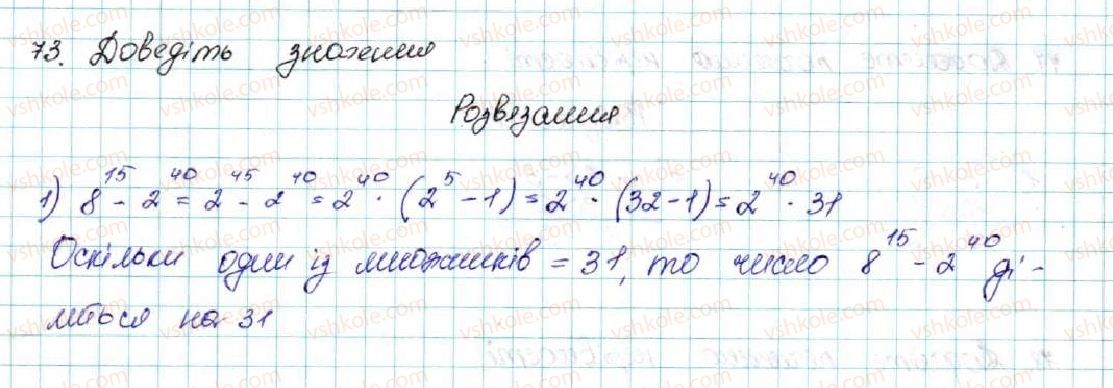 73. Доведіть значення
Розвязання
1) 8^15 - 2^40 = 2^45 - 2^40 = 2^40 · (2^5 - 1) = 2^40 · (32 - 1) = 2^40 · 31
Оскільки один із множників = 31, то число 8^15 - 2^40 ді-
литься на 31